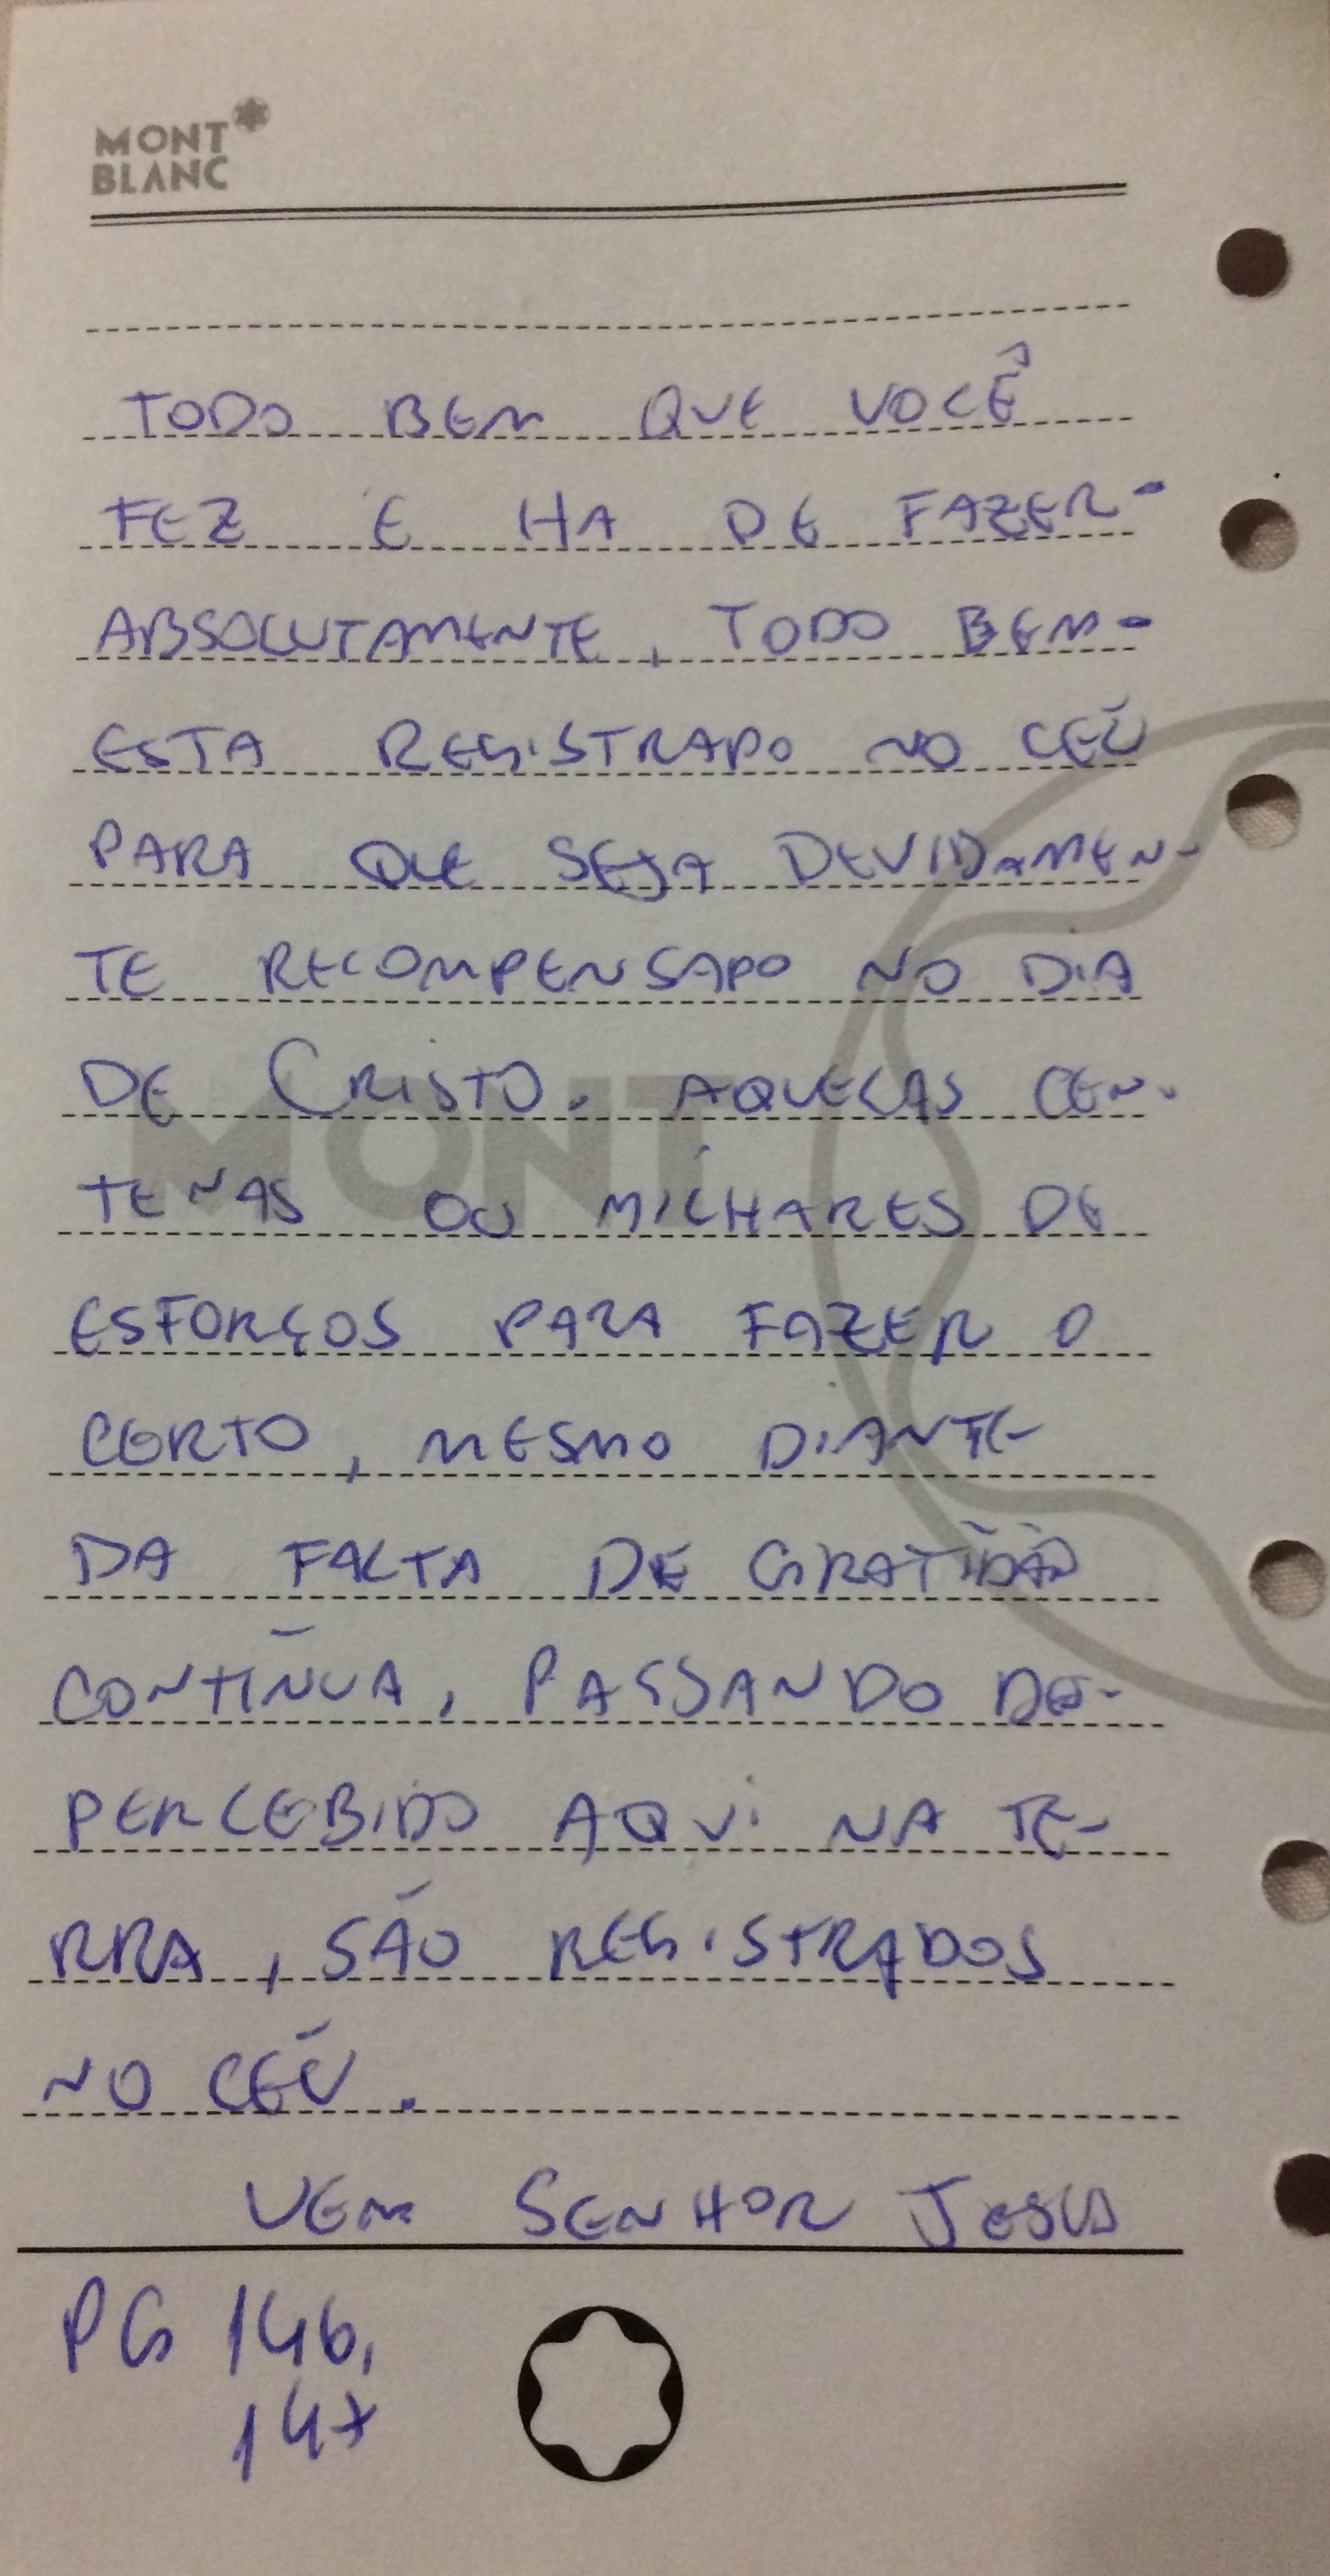 MONT
BLANC
TODO BEM QUE VOCÊ
FEZ E HA DE FAZER-
ABSOLUTAMENTE, TODO BEM-
ESTA REGISTRADO NO CÉU
PARA QUE SEJA DEVIDAMEN-
TE RECOMPENSADO NO DIA
DE CRISTO. AQUELAS CEN-
TENAS OU MILHARES DE
ESFORÇOS PARA FAZER O
CERTO, MESMO DIANTE
DA FALTA DE GRATIDÃO
CONTÍNUA, PASSANDO DE-
PERCEBIDO AQUI NA TE-
RRA, SÃO REGISTRADOS
NO CÉU.
VEM SENHOR JESUS
PG 146,
147
MONT